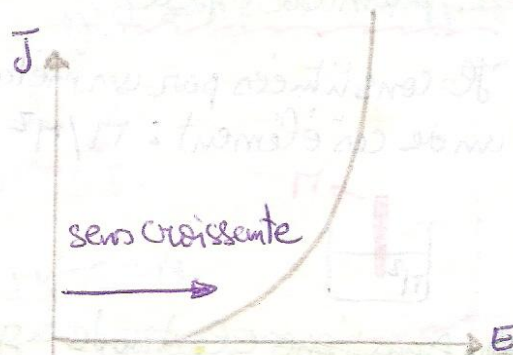 J
sens croissante
E